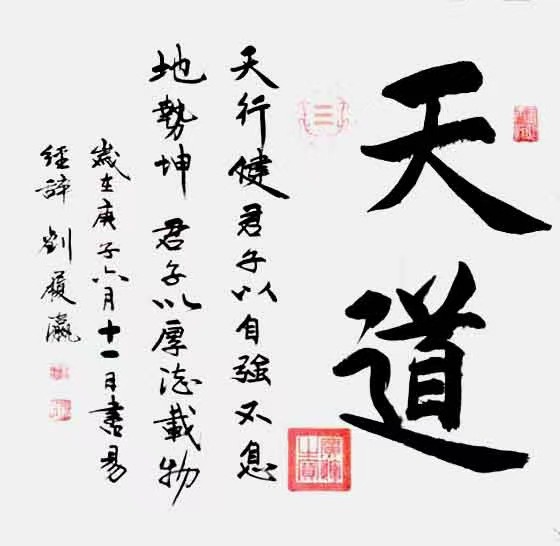 天道
天行健君子以自強不息
地勢坤君子以厚德載物
歲在庚子六月十一日書易
經辞劉履瀛
三